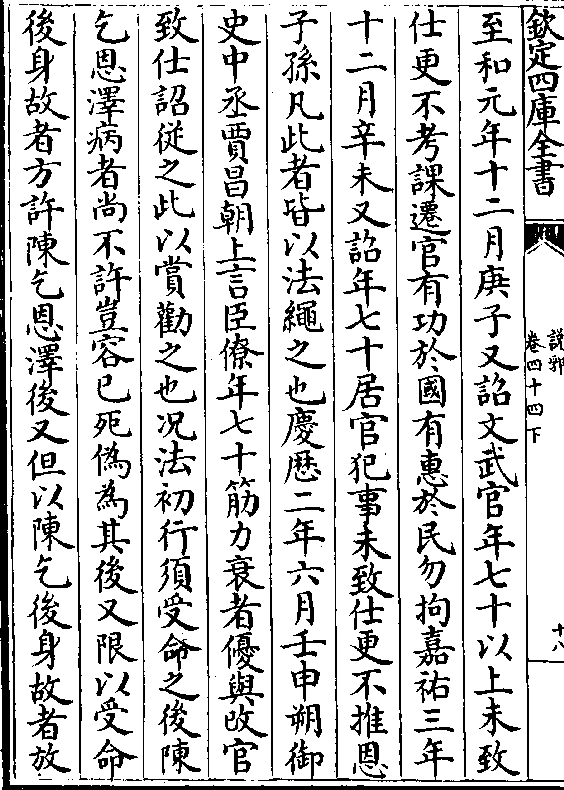 欽定四庫全書
說郛
卷四十四下
十八
至和元年十二月庚子又詔文武官年七十以上未致
仕更不考課遷官有功於國有惠於民勿拘嘉祐三年
十二月辛未又詔年七十居官犯事未致仕更不推恩
子孫凡此者皆以法繩之也慶歷二年六月壬申朔御
史中丞賈昌朝上言臣僚年七十筋力衰者優與改官
致仕詔從之此以賞勸之也况法初行須受命之後陳
乞恩澤病者尚不許豈容已死偽為其後又限以受命
後身故者方許陳乞恩澤後又但以陳乞後身故者放